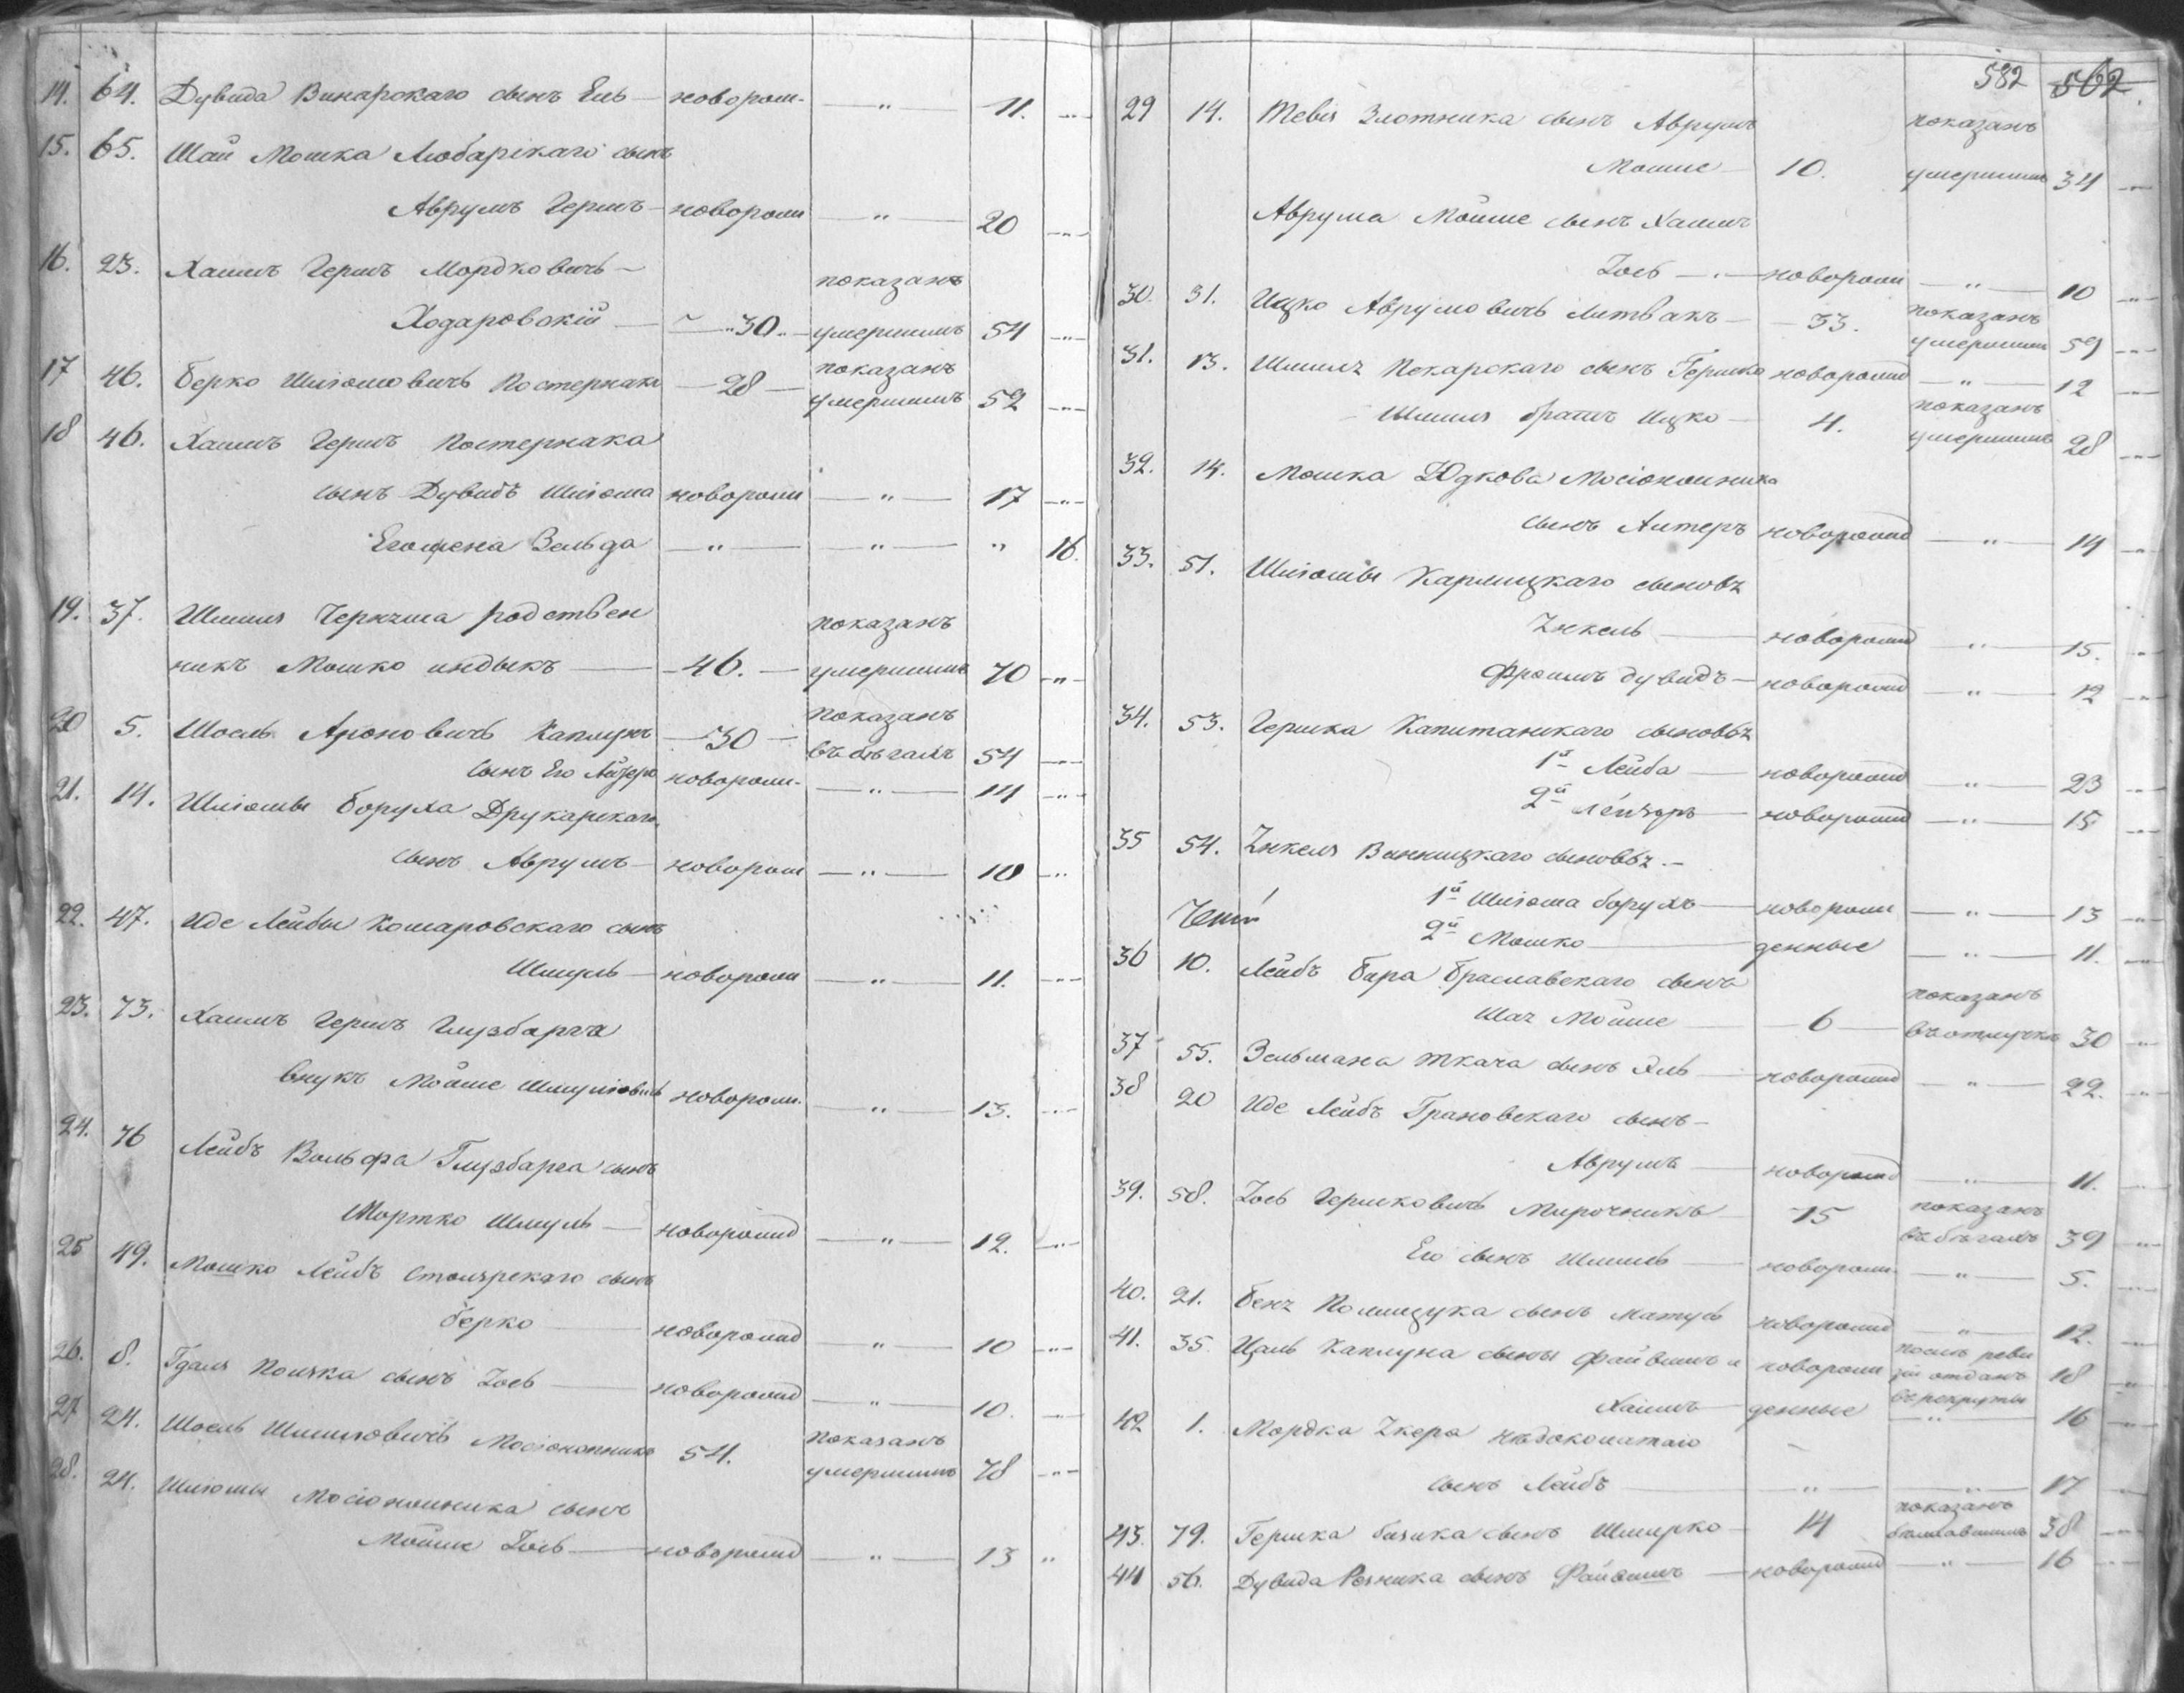 14. 64. Дувида Винарскаго сынъ Ель — новорож. — " — 11. — " —
15. 65. Шаи Мошка Любарскаго сынъ
Аврумъ Гершъ — новорож — " — 20 — " —
16. 23. Хаимъ Гершъ Мордковичъ — показанъ
Ходаровскій — " 30 " — умершимъ 54 — " —
17 46. Берко Шліомовичъ Постернакъ — 28 — показанъ умершимъ 52 — " —
18 46. Хаимъ Гершъ Постернака
сынъ Дувидъ Шліома новорож — " — 17 — " —
Его жена Зельда — " — — " — " 16.
19. 37. Шмиля Чернѧга родствен показанъ
никъ Мошко индыкъ — 46. — умершимъ 70 — " —
20 5. Шоель Ароновичъ Каплунъ — 30 — показанъ въ бѣгахъ 54 — " —
сынъ Его Лейзеръ новорож. — " — 14 — " —
21. 14. Шліомы Боруха Друкарскаго
сынъ Аврумъ — новорож — " — 10 — " —
22. 47. Иде Лейбы Комаровскаго сынъ
Шмуль — новорож — " — 11. — " —
23. 73. Хаимъ Гершъ Глузбарга
внукъ Мойше Шмуліовичъ новорож. — " — 13. — " —
24. 76 Лейбъ Вольфа Глузбарга сынъ
Мортко Шмуль — новорожд — " — 12. — " —
25 49. Мошко Лейбъ Столярскаго сынъ
Берко — новорожд — " — 10 — " —
26. 8. Гдаля Полѧка сынъ Іось — новорожд — " — 10. — " —
27 24. Шоель Шмилювичъ Мосіонжникъ 54. показанъ умершимъ 78 — " —
28. 24. Шліомы Мосіонжника сынъ
Мойше Іось — новорожд — " — 13 "
582 562
29 14. Тевья Злотника сынъ Аврумъ показанъ
Мойше — 10. умершимъ 34 — " —
Аврума Мойше сынъ Хаимъ
Іось — новорож — " — 10 — " —
30. 31. Ицко Аврумовичъ Литвакъ — 33. показанъ умершимъ 59 — " —
31. 13. Шмиля Пекарскаго сынъ Гершко новорожд — " — 12 — " —
Шмиля братъ Ицко — 4. показанъ умершимъ 28 — " —
32. 14. Мошка Юдкова Мосіонжника
сынъ Алтеръ новорожд — " — 14 — " —
33. 51. Шліомы Карлицкаго сыновья
Янкель — новорожд — " — 15. — " —
Фроимъ Дувидъ — новорожд — " — 12 — " —
34. 53. Гершка Капитанскаго сыновья
1й Лейба — новорожд — " — 23 — " —
2й Лейзеръ — новорожд — " — 15 — " —
35 54. Янкеля Винницкаго сыновья —
1й Шліома Борухъ — новорож — " — 13 — " —
2й Мошко — денные — " — 11. — " —
36 10. Лейбъ Бера Браславскаго сынъ показанъ
Шая Мойше — 6 — въ отлучкѣ 30 — " —
37 55. Зельмана ткача сынъ Эль — новорожд — " — 22. — " —
38 20 Иде Лейбъ Грановскаго сынъ —
Аврумъ — новорожд — " — 11. — " —
39. 58. Іось Гершковичъ Мирочникъ — 15 показанъ въ бѣгахъ 39 — " —
Его сынъ Шмиль — новорож. — " — 5. — " —
40. 21. Беня Полищука сынъ Матусь новорожд — " — 12. — " —
41. 35. Цаль Каплуна сыны Файвишъ и новорож послѣ реви зіи отданъ въ рекруты 18 — " —
Хаимъ — денные — " — 16 — " —
42 1. Мордка
сынъ Лейбъ — " — — " — 17 — " —
43. 79. Гершка сынъ Шмерко — 14 показанъ 38 — " —
44 56. Дувида Резника сынъ Файвишъ — новорожд — " — 16 — " —